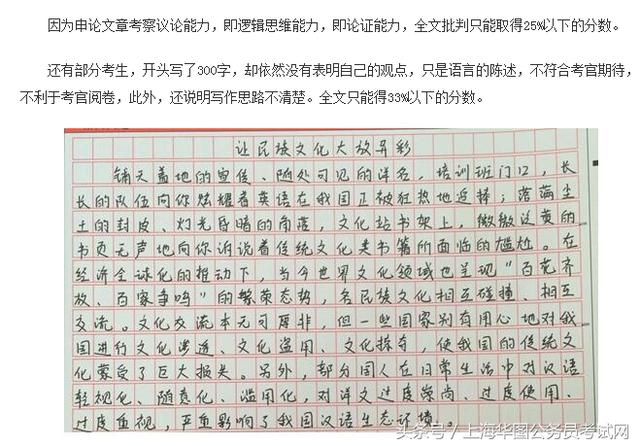 因为申论文章考察议论能力，即逻辑思维能力，即论证能力，全文批判只能取得25%以下的分数。
还有部分考生，开头写了300字，却依然没有表明自己的观点，只是语言的陈述，不符合考官期待，
不利于考官阅卷，此外，还说明写作思路不清楚。全文只能得33%以下的分数。
让民族文化大放异彩
铺天盖地的宣传、随处可见的洋名，培训班门口，长
长的队伍向你炫耀着英语在我国正被狂热地追捧；落满尘
土的封皮、灯光昏暗的角落，文化站书架上，微微泛黄的
书页无声地向你诉说着传统文化类书籍所面临的尴尬。在
经济全球化的推动下，当今世界文化领域也呈现"百花齐
放、百家争鸣"的繁荣态势，各民族文化相互碰撞、相互
交流。文化交流本无可厚非，但一些国家别有用心地对我
国进行文化渗透、文化盗用、文化掠夺，使我国的传统文
化蒙受了巨大损失。另外，部分国人在日常生活中对汉语
轻视化、随意化、滥用化，对洋文过度崇尚、过度使用、
过度重视，严重影响了我国汉语生态环境。
头条号／上海华图公务员考试网